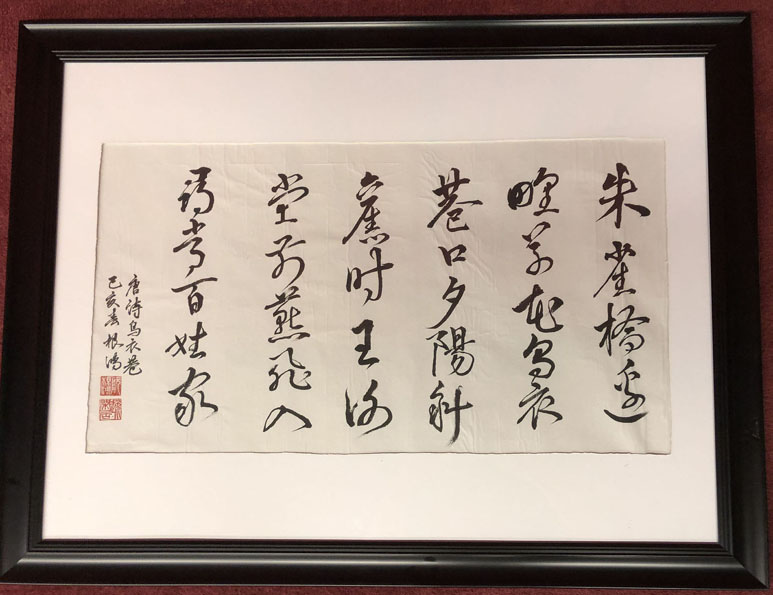 朱雀橋邊
野草花烏衣
巷口夕陽斜
舊时王谢
堂前燕飛入
尋常百姓家
唐詩烏衣巷
己亥春根鴻